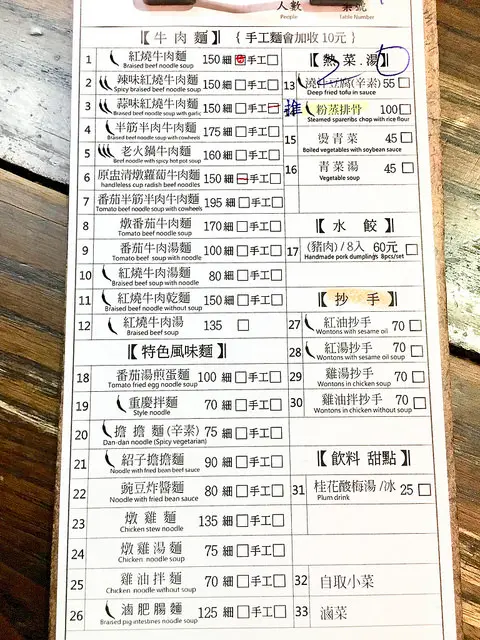 人數
People
桌號
Table Number
【牛肉麵】{手工麵會加收 10元}
1 紅燒牛肉麵 150 細□手工□
Braised beef noodle soup
2 辣味紅燒牛肉麵 150 細□手工□
Spicy braised beef noodle soup
3 蒜味紅燒牛肉麵 150 細□手工□
Braised beef noodle soup with garlic
4 半筋半肉牛肉麵 175 細□手工□
Braised beef noodle soup with cowheels
5 老火鍋牛肉麵 160 細□手工□
Beef noodle with spicy hot pot soup
6 原盅清燉蘿蔔牛肉麵 150 細□手工□
handleless cup radish beef noodles
7 番茄半筋半肉牛肉麵 195 細□手工□
Tomato beef noodle soup with cowheels
8 燉番茄牛肉麵 170 細□手工□
Tomato beef noodle soup
9 番茄牛肉湯麵 100 細□手工□
Tomato beef soup with noodle
10 紅燒牛肉湯麵 80 細□手工□
Braised beef soup with noodle
11 紅燒牛肉乾麵 150 細□手工□
Braised beef noodle without soup
12 紅燒牛肉湯 135 □
Braised beef soup
【特色風味麵】
18 番茄湯煎蛋麵 100 細□手工□
Tomato fried egg noodle soup
19 重慶拌麵 70 細□手工□
Style noodle
20 擔擔麵(辛素) 75 細□手工□
Dan-dan noodle (Spicy vegetarian)
21 紹子擔擔麵 90 細□手工□
Noodle with fried bean sauce
22 豌豆炸醬麵 80 細□手工□
Noodle with fried bean sauce
23 燉雞麵 135 細□手工□
Chicken stew noodle
24 燉雞湯麵 75 細□手工□
Chicken noodle soup
25 雞油拌麵 70 細□手工□
Chicken noodle without soup
26 滷肥腸麵 125 細□手工□
Braised pig intestines noodle soup
【熱菜.湯】
13 澆汁豆腐(辛素) 55 □
Deep fried tofu in sauce
推 粉蒸排骨 100 □
Steamed spareribs chop with rice flour
15 燙青菜 45 □
Boiled vegetables with soybean sauce
16 青菜湯 45 □
Vegetable soup
【水餃】
17 (豬肉) / 8入 60元 □
Handmade pork dumplings 8pcs/set
【抄手】
27 紅油抄手 70 □
Wontons with sesame oil
28 紅湯抄手 70 □
Wontons with sesame oil soup
29 雞湯抄手 70 □
Wontons in chicken soup
30 雞油拌抄手 70 □
Wontons in chicken without soup
【飲料 甜點】
31 桂花酸梅湯 /冰 25 □
Plum drink
32 自取小菜
33 滷菜